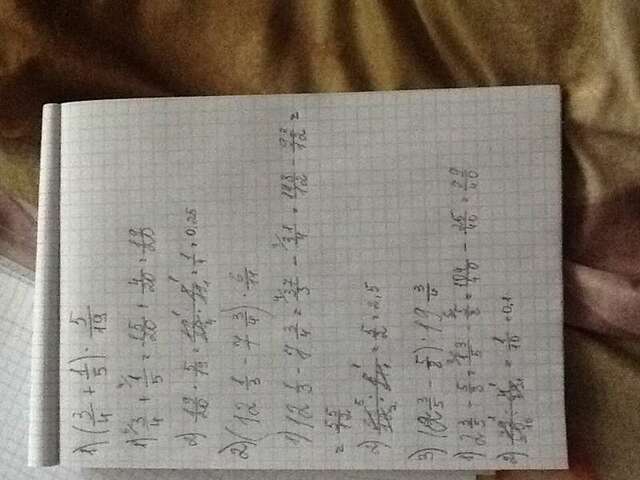 1) (3/4 + 1/5) · 5/19
1) 3/4 + 1/5 = 15/20 + 4/20 = 19/20
2) 19/20 · 5/19 = 19/20 · 5/19 = 1/4 = 0,25
2) (12 1/3 - 7 3/4) · 6/11
1) 12 1/3 - 7 3/4 = 37/3 - 31/4 = 148/12 - 93/12 =
= 55/12
2) 55/12 · 6/11 = 5/2 = 2,5
3) (2 3/5 - 5/8) : 19 3/4
1) 2 3/5 - 5/8 = 13/5 - 5/8 = 104/40 - 25/40 = 79/40
2) 79/40 · 4/79 = 1/10 = 0,1